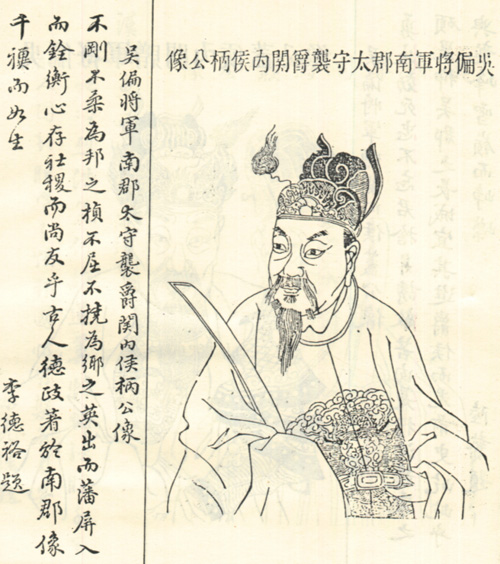 吳偏將軍南郡太守襲爵関内侯柄公像
吳偏將軍南郡太守襲爵関內侯柄公像
不剛不柔為邦之楨不屈不撓為鄉之英出而藩屏入
而銓衡心存社稷而尚友乎古人德政著於南郡像
千禩而如生
李德裕題